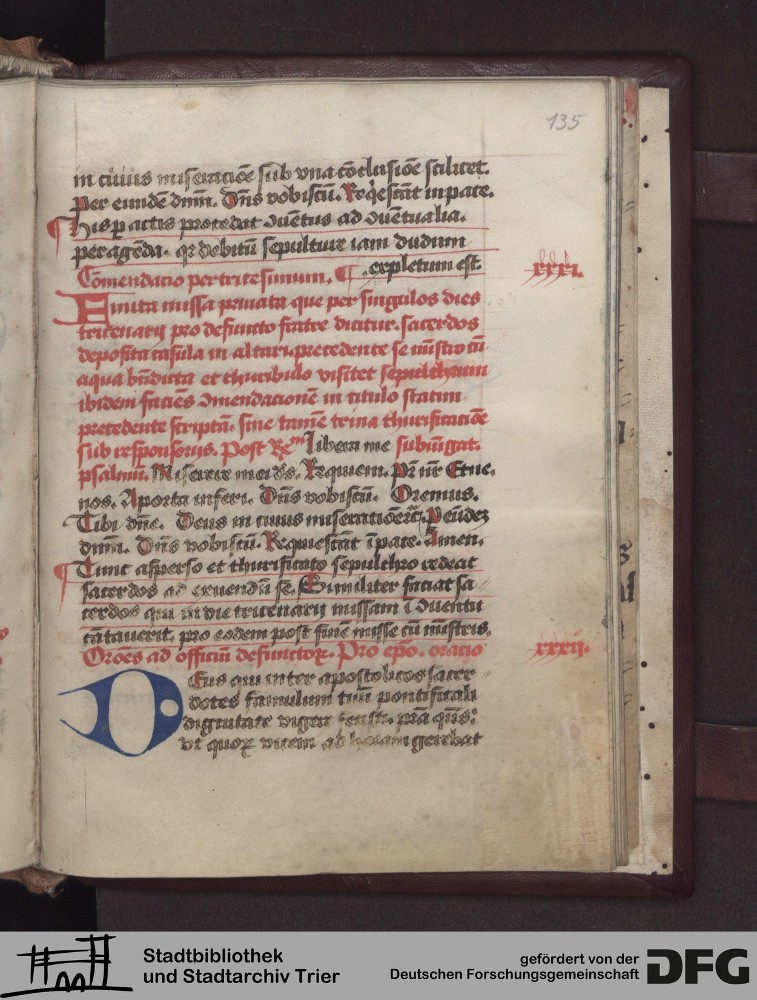 135
in cuius miseratiōe sub vna cōclusiōe scilicet.
Per eundē dnm̄. Dn̄s vobiscū. Reqͥescāt in pace.
His ꝑactis procedat ꝯuētus ad ꝯuētualia.
peragēda. qꝛ debitū sepulture iam dudum
expletum est.
Cōmendacio per tricesimum. xxxi.
Finita missa priuata que per singulos dies
tricenarij pro defuncto fratre dicitur. sacerdos
deposita casula in altari. precedente se mīstro cū
aqua bn̄dicta et thuribulo visitet sepulchrum
ibidem faciēs ꝯmendacionē in titulo statim
precedente scriptā. sine tamē trina thurificaciōe
sub responsorijs. Post Rm Libera me subiūgat.
psalmū. Miserere mei ds̄. Requiem. Pr̄ nr̄ Et ne.
nos. A porta inferi. Dn̄s vobiscū. Oremus.
Tibi dn̄e. Deus in cuius miseratiōe Per eūdeꝫ
dnm̄. Dn̄s vobiscū. Requiescāt ī pace. Amen.
Tunc asperso et thurificato sepulchro redeat
sacerdos ad exuendū se. Similiter faciat sa
cerdos qui in die tricenarij missam ī ꝯuentu
cātauerit. pro eodem post finē misse cū mīstris.
Orōes ad officiū defunctoꝝ. Pro ep̄o. oracio xxxij.
Deus qui inter apostolicos sacer
dotes famulum tuū pontificali
dignitate vigere p̄sta qs̄.
vt quoꝝ vicem ad horam gerebat
Stadtbibliothek
und Stadtarchiv Trier
gefördert von der
Deutschen Forschungsgemeinschaft
DFG